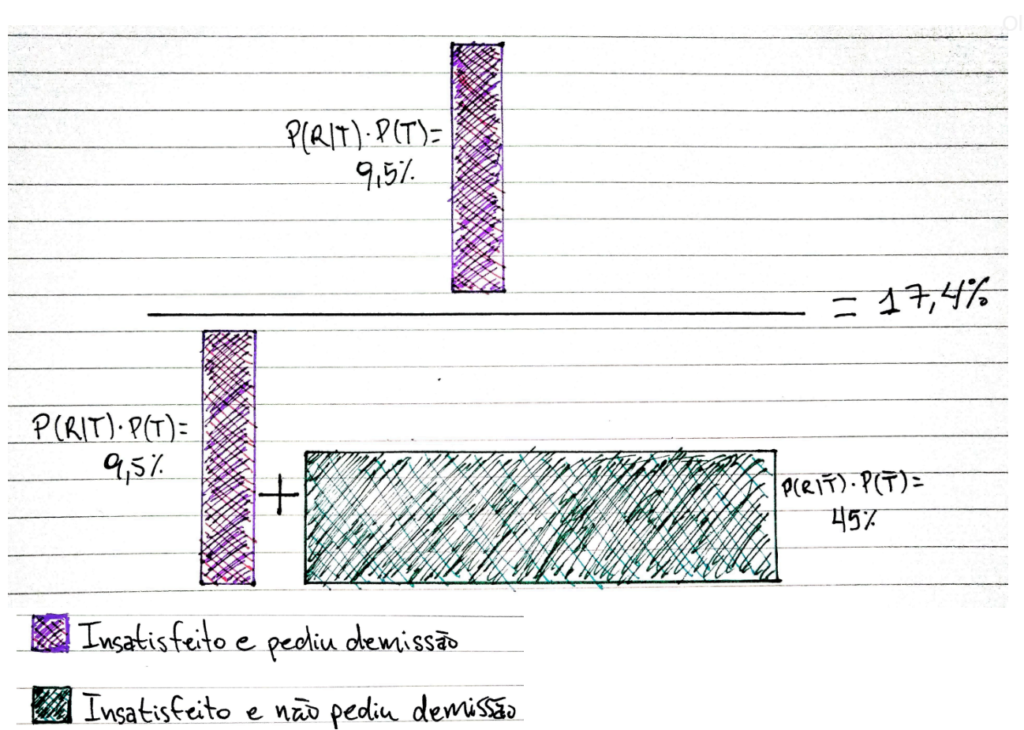 P(R|T)·P(T)=
9,5%
= 17,4%
P(R|T)·P(T)=
9,5%
+
P(R|T̄)·P(T̄)=
45%
Insatisfeito e pediu demissão
Insatisfeito e não pediu demissão